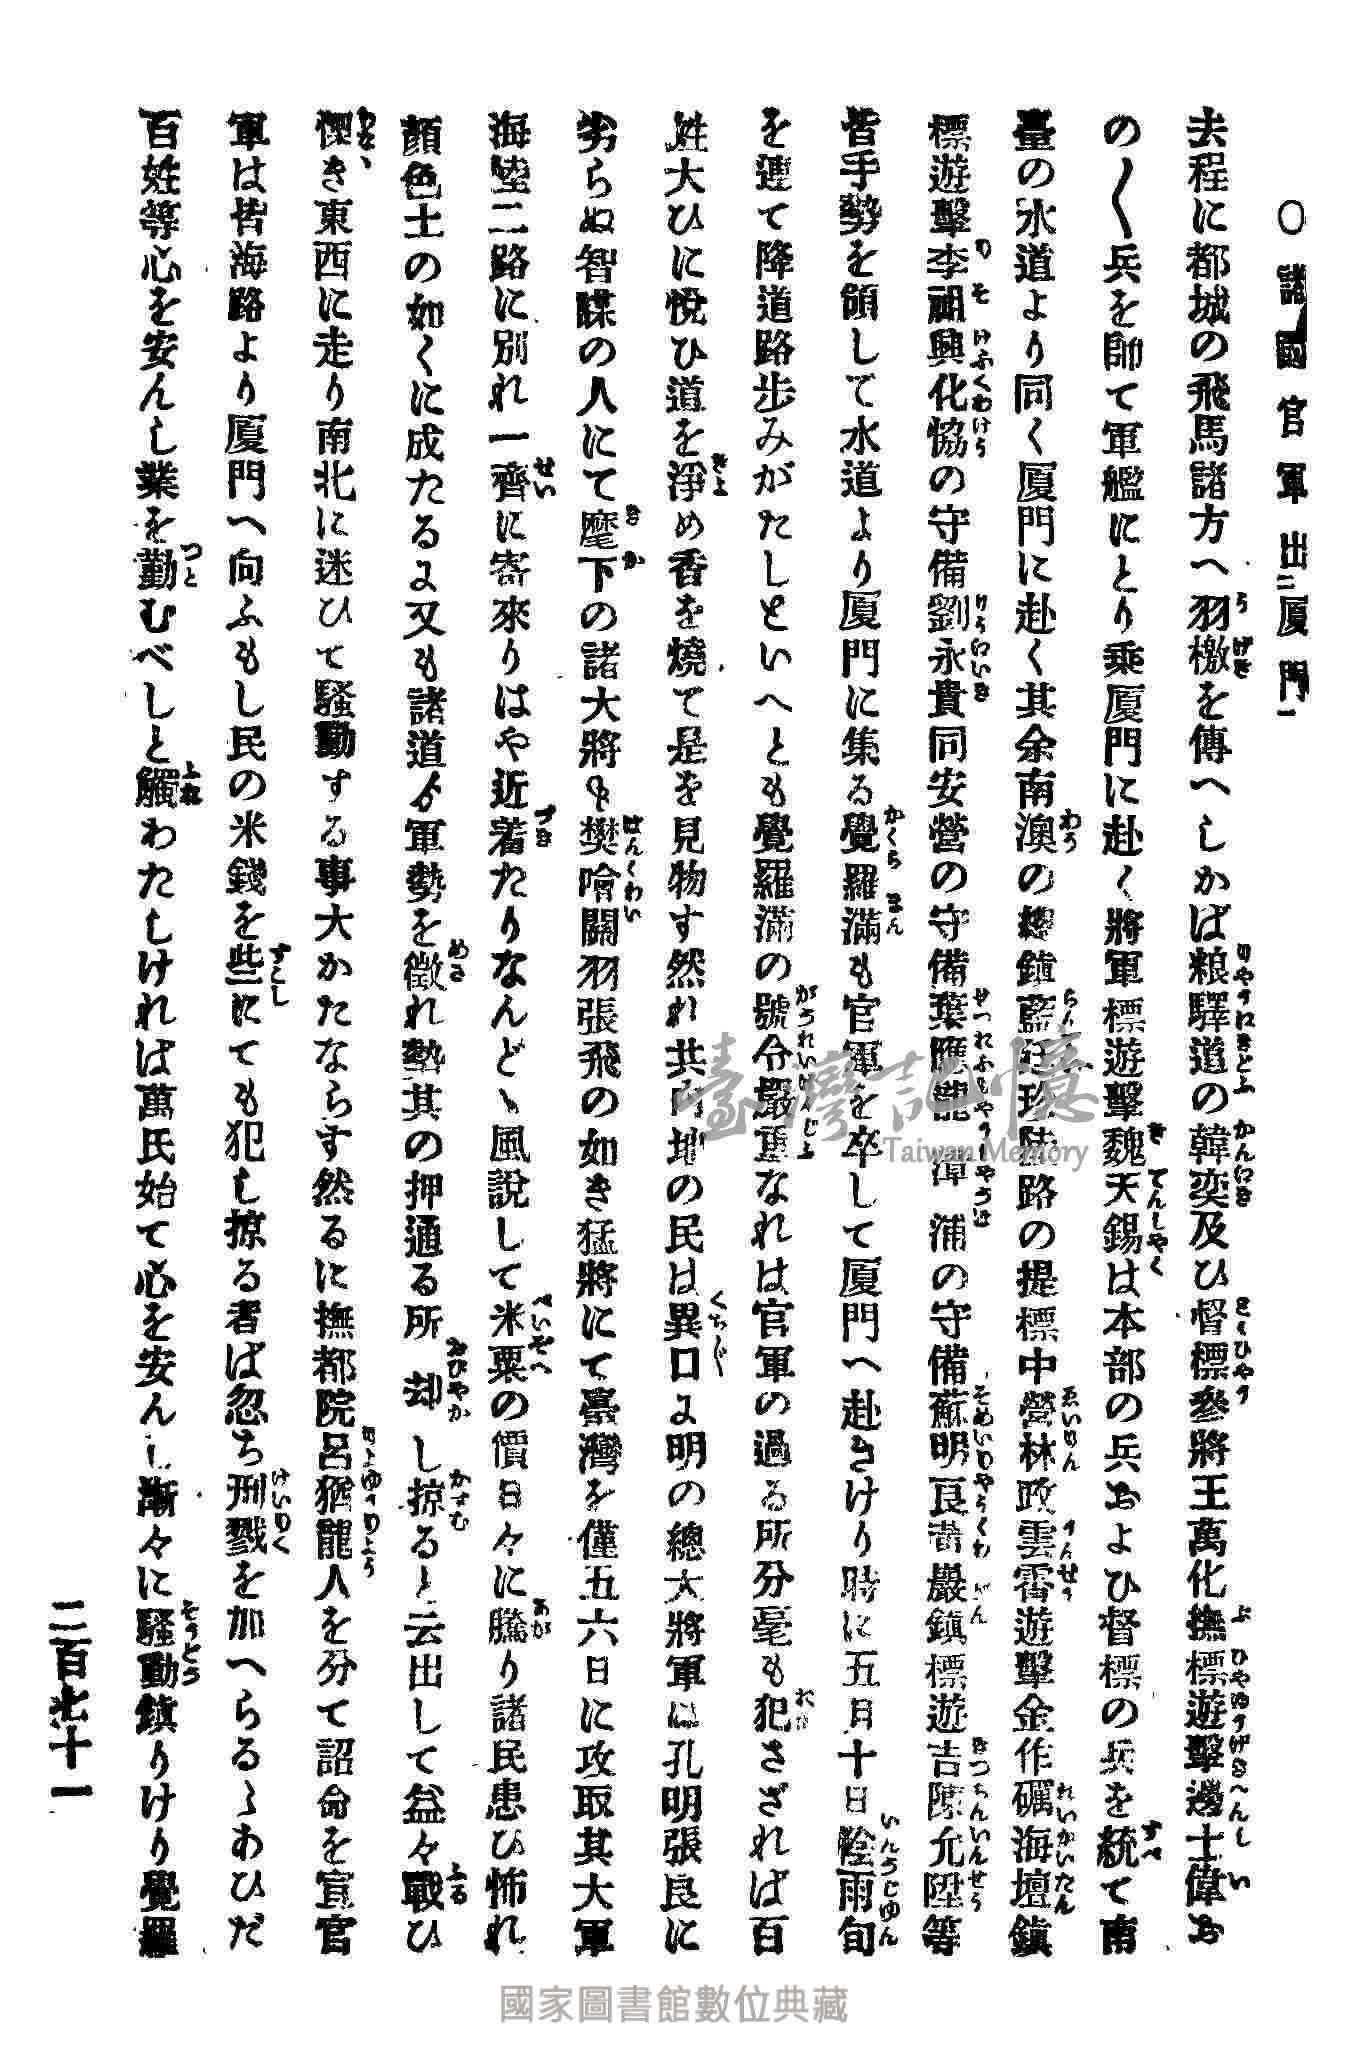 〇諸國官軍出二厦門一
去程に都城の飛馬諸方へ羽檄を傳へしかば粮驛道の韓奕及ひ督標參將王萬化撫標遊擊邊士偉お
の〱兵を帥て軍艦にとり乘厦門に赴く將軍標遊擊魏天錫は本部の兵およひ督標の兵を統て南
臺の水道より同く厦門に赴く其余南澳の總鎭藍廷珍陸路の提標中營林政雲霄遊擊金作礪海壇鎭
標遊擊李祖興化協の守備劉永貴同安營の守備葉應龍漳浦の守備蘇明良黃巖鎭標遊吉陳允陞等
皆手勢を領して水道より厦門に集る覺羅滿も官軍を卒して厦門へ赴きけり時に五月十日陰雨旬
を連て降道路步みがたしといへとも覺羅滿の號令嚴重なれは官軍の過る所分毫も犯さざれば百
姓大ひに悅ひ道を淨め香を燒て是を見物す然れ共内地の民は異口よ明の總大將軍は孔明張良に
劣らぬ智謀の人にて麾下の諸大將も樊噲關羽張飛の如き猛將にて臺灣を僅五六日に攻取其大軍
海陸二路に別れ一齊に寄來りはや近着たりなんど丶風說して米粟の價日々に騰り諸民患ひ怖れ
顏色土の如くに成たるよ又も諸道ゟ軍勢を徵れ勢其の押通る所却し掠ると云出して益々戰ひ
慄き東西に走り南北に迷ひて騷動する事大かたならす然るに撫都院呂猶龍人を分て詔命を宣官
軍は皆海路より厦門へ向ふもし民の米錢を些にても犯し掠る者ば忽ち刑戮を加へらるゝあひだ
百姓等心を安んし業を勤むべしと觸わたしければ萬民始て心を安んし漸々に騷動鎭りけり覺羅
二百七十一
臺灣記憶
Taiwan Memory
國家圖書館數位典藏